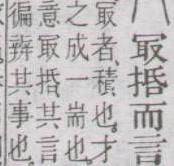 冣抵而言
冣者、積也、才
之成一耑也、
意冣抵其言
徧辨其事也、